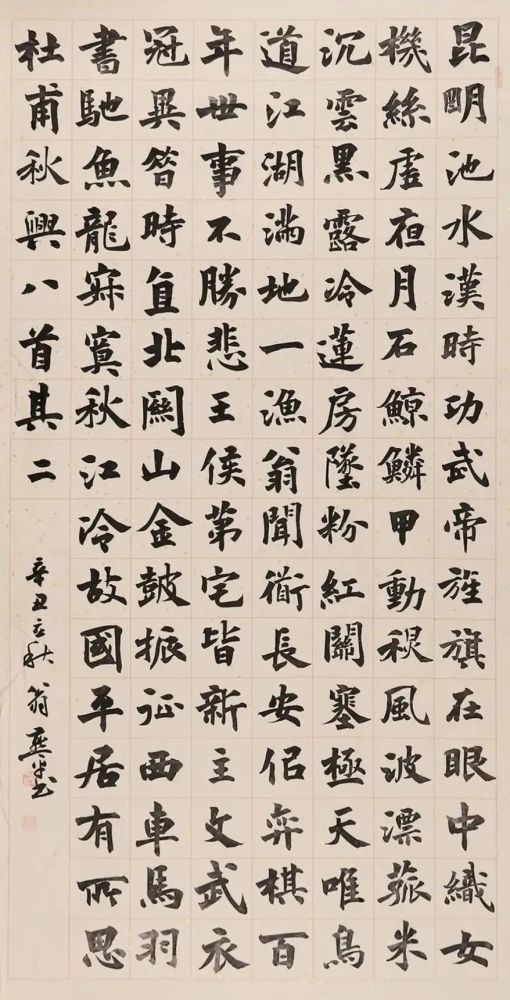 昆明池水漢時功武帝旌旗在眼中織女
機絲虛夜月石鯨鱗甲動秋風波漂菰米
沉雲黑露冷蓮房墜粉紅關塞極天唯鳥
道江湖滿地一漁翁聞衜長安佀弈棋百
年世事不勝悲王侯第宅皆新主文武衣
冠異昔時直北關山金鼓振征西車馬羽
書馳魚龍寂寞秋江冷故國平居有所思
杜甫秋興八首其二
辛丑立秋翁